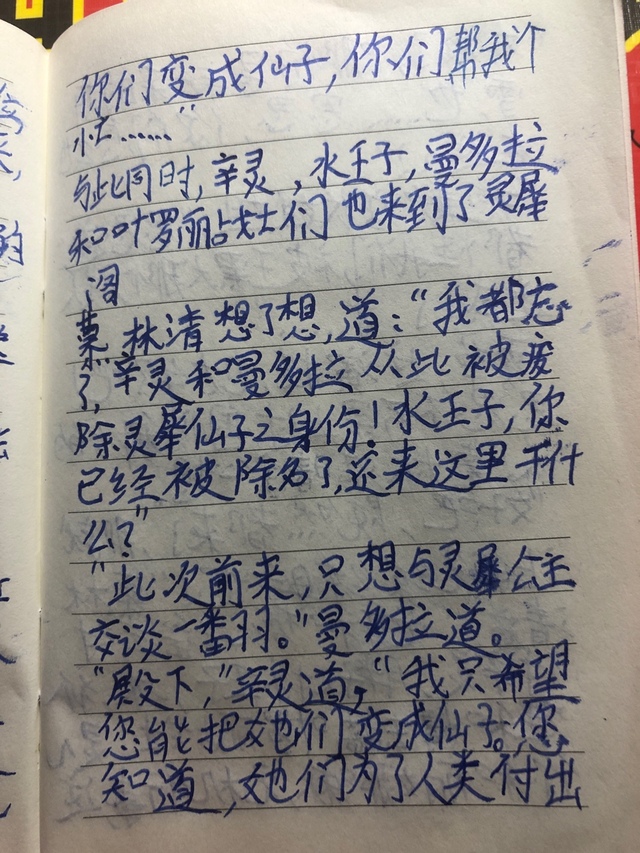 你们变成仙子,你们帮我个
忙……"
与此同时,辛灵,水王子,曼多拉
和叶罗丽战士们也来到了灵犀
阁
林渚想了想,道:"我都忘
了,辛灵和曼多拉从此被废
除灵犀仙子之身份!水王子,你
已经被除名了,还来这里干什
么?"
"此次前来,只想与灵犀公主
交谈一番羽。"曼多拉道。
"殿下,"辛灵道,"我只希望
您能把她们变成仙子。您
知道,她们为了人类付出